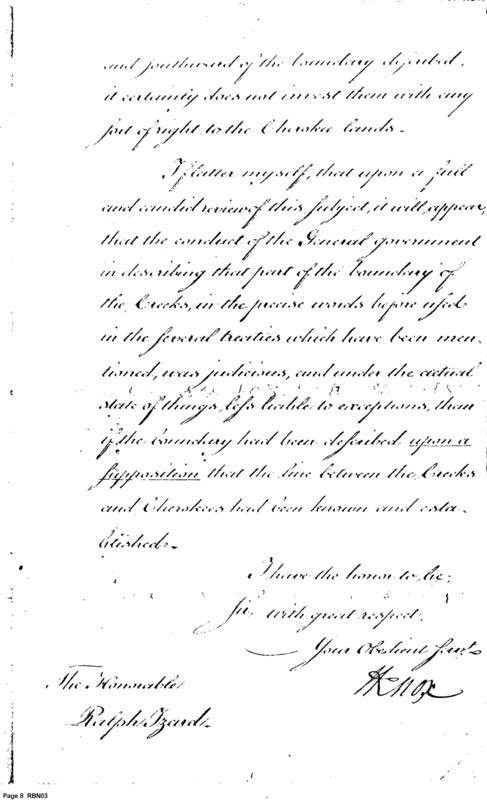 and southward of the boundary described,
it certainly does not invest them with any
sort of right to the Cherokee lands.
I flatter myself, that upon a full
and candid review of this subject, it will appear,
that the conduct of the General government
in describing that part of the boundary of
the Creeks, in the precise words before used
in the several treaties which have been men-
tioned, was judicious, and under the actual
state of things, less liable to exceptions, than
if the boundary had been described upon a
supposition that the line between the Creeks
and Cherokees had been known and esta-
blished.
I have the honor to be,
Sir, with great respect,
Your Obedient Servt
HKnox
The Honorable
Ralph Izard.
Page 8 RBN03